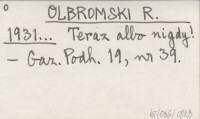 OLBROMSKI R.
1931... Teraz albo nigdy!
— Gaz. Podh. 19, nr 39.